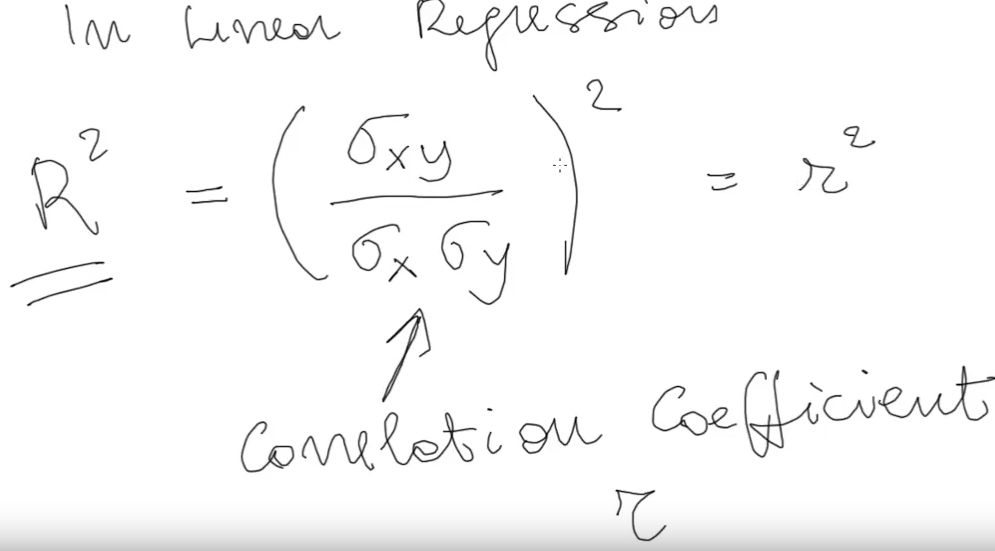 In Linear Regression
R² = (σxy / σx σy)² = r²
Correlation Coefficient
r